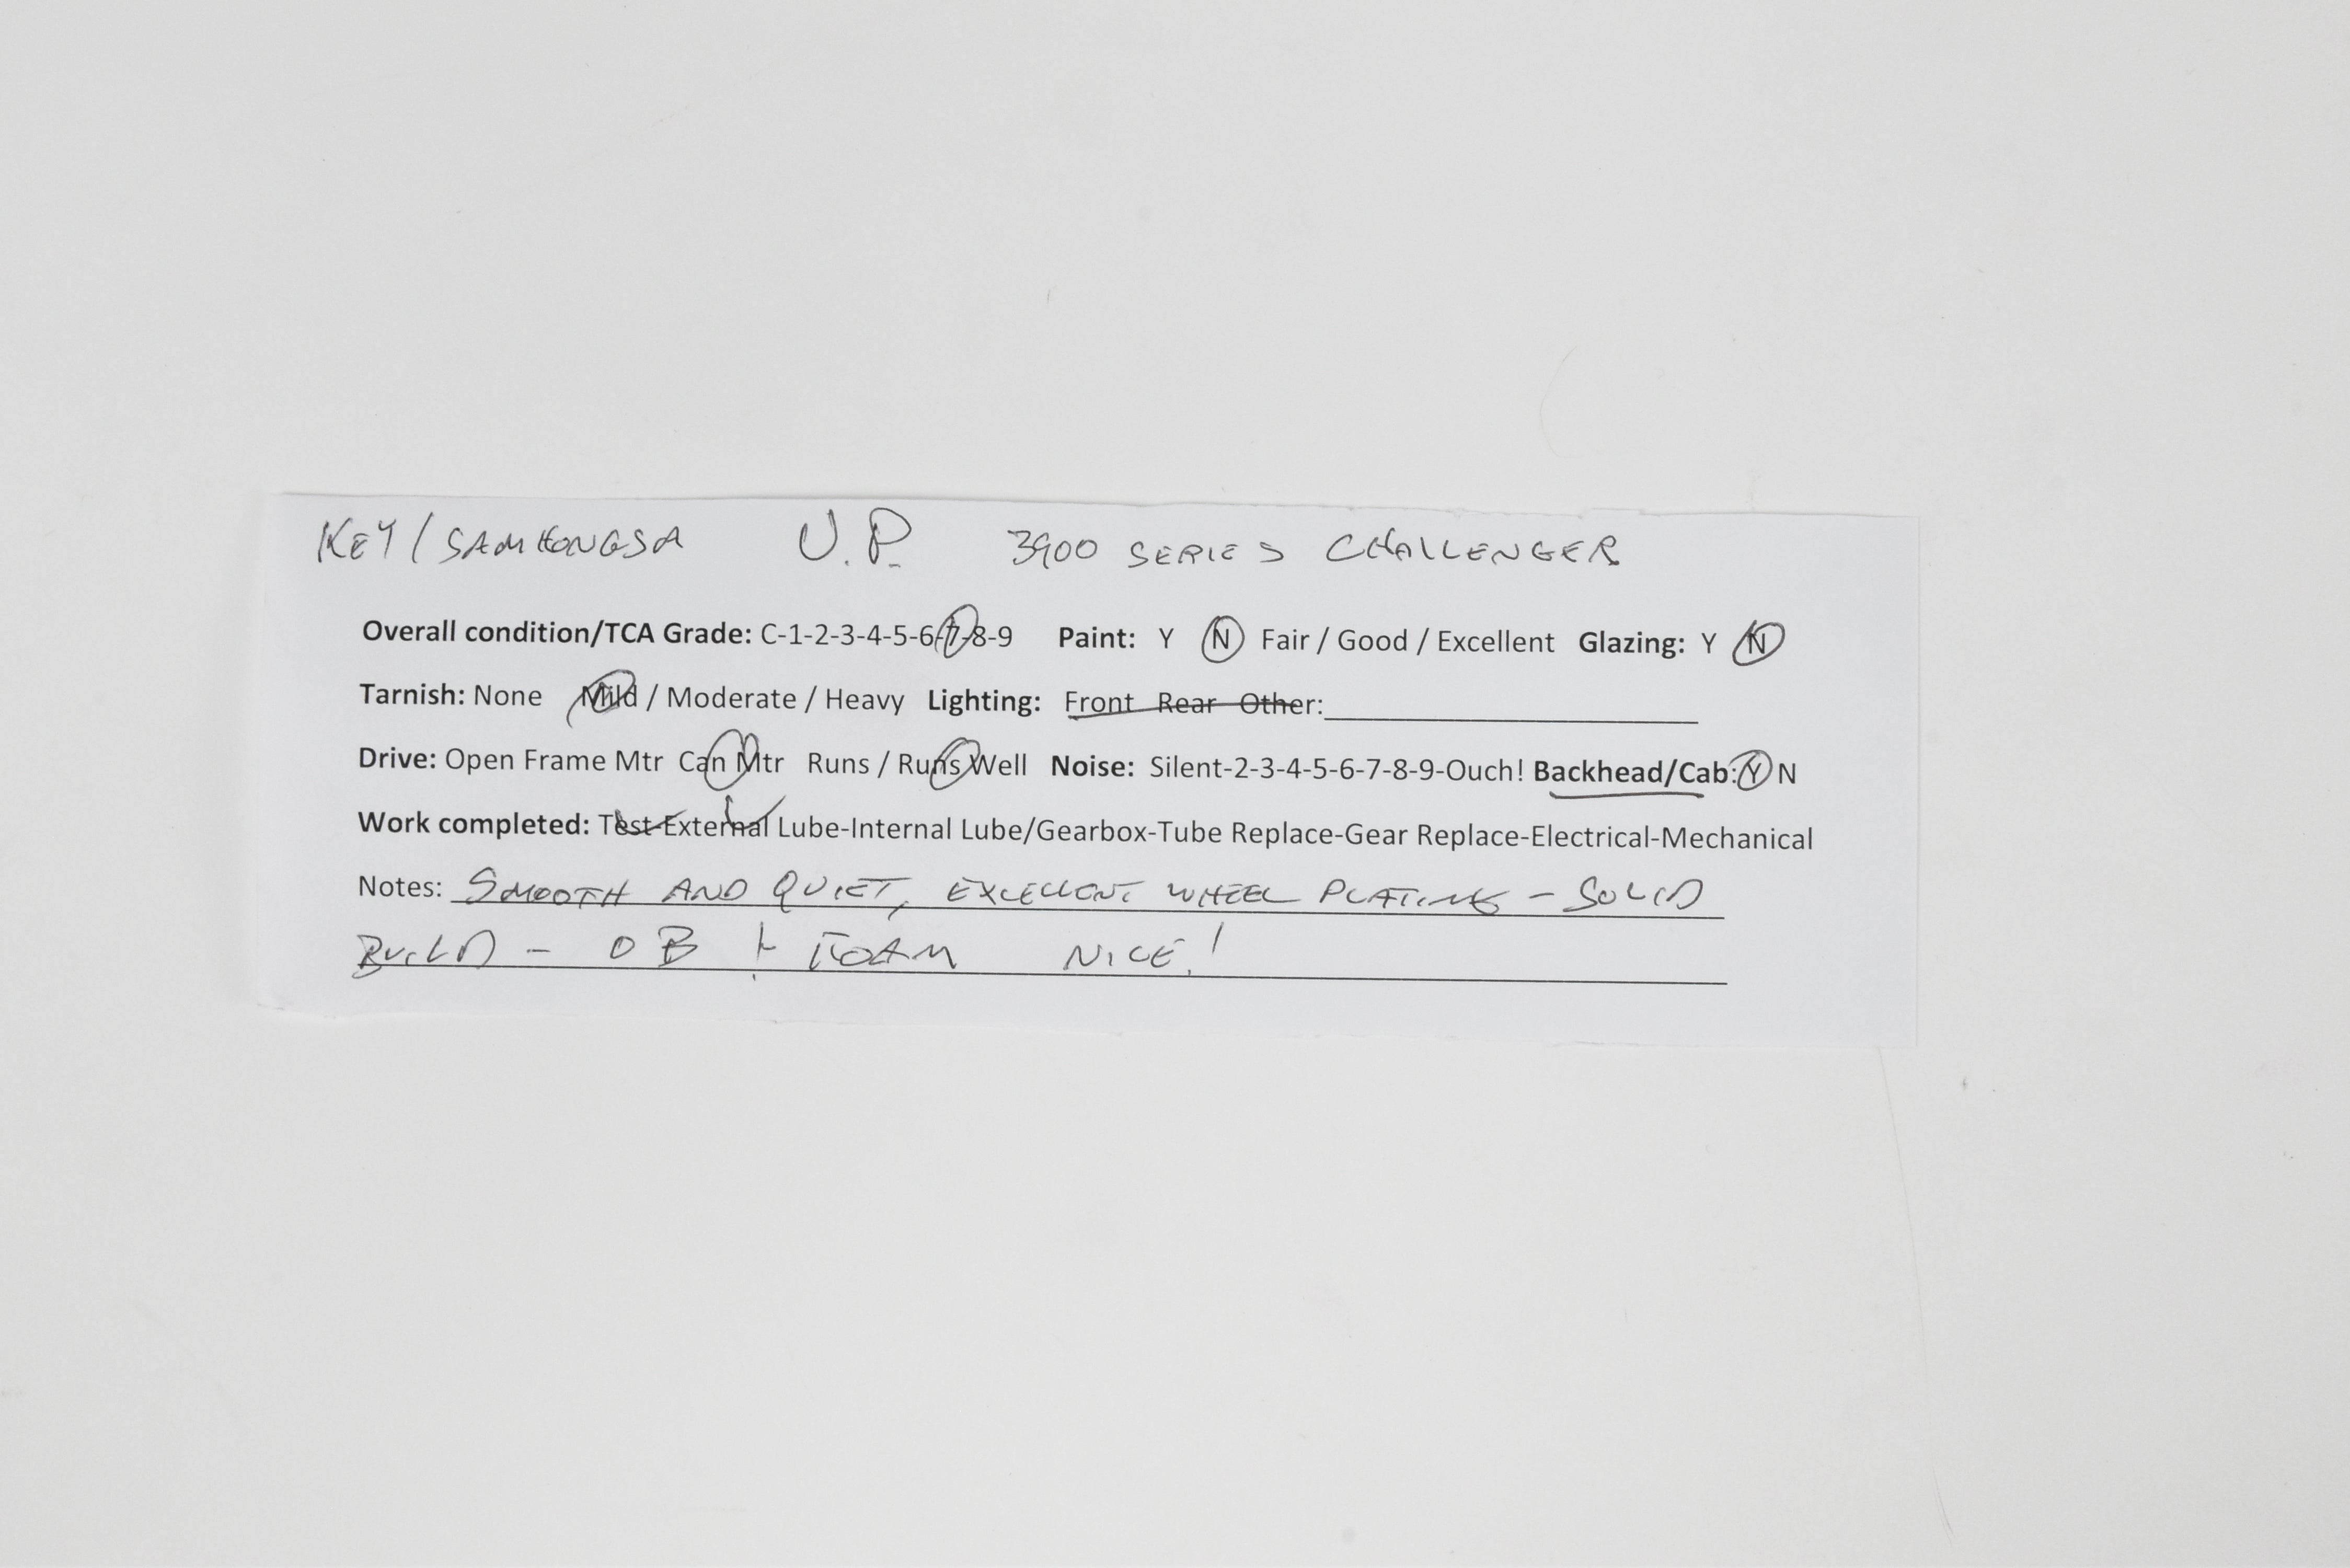 KEY/SAMHONGSA U.P. 3900 SERIES CHALLENGER
Overall condition/TCA Grade: C-1-2-3-4-5-6-7-8-9 Paint: Y N Fair / Good / Excellent Glazing: Y N
Tarnish: None Mild / Moderate / Heavy Lighting: Front Rear Other:
Drive: Open Frame Mtr Can Mtr Runs / Runs Well Noise: Silent-2-3-4-5-6-7-8-9-Ouch! Backhead/Cab: Y N
Work completed: Test-External Lube-Internal Lube/Gearbox-Tube Replace-Gear Replace-Electrical-Mechanical
Notes: SMOOTH AND QUIET, EXCELLENT WHEEL PLATING - SOLID
BUILD - OB + FOAM NICE!